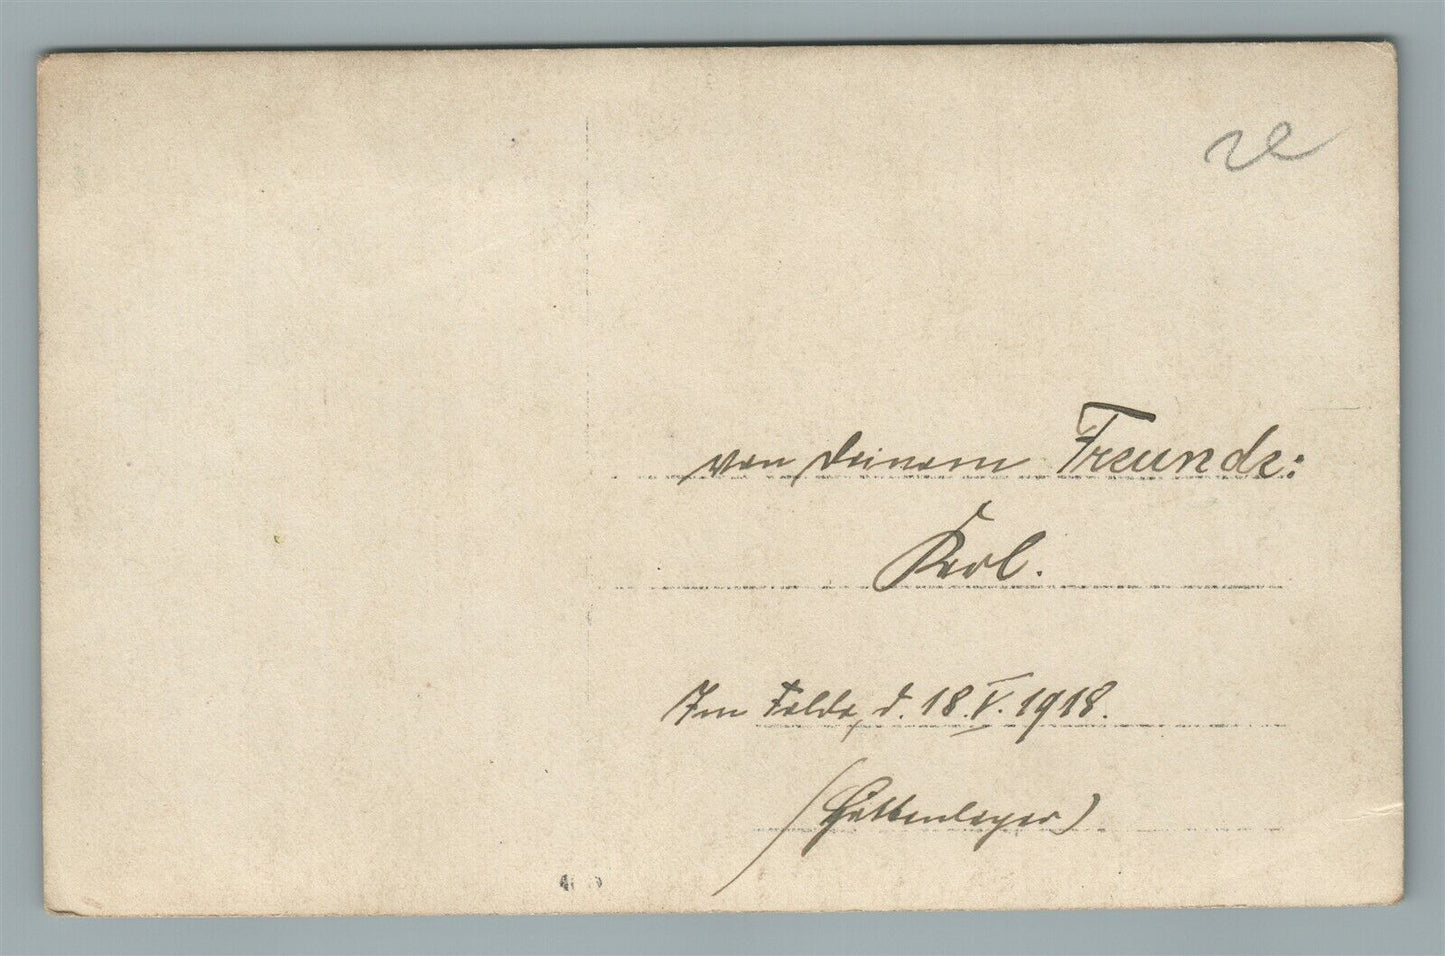 von deinem Freunde:
Karl.
Im Felde, d. 18.V.1918.
(Hüttenlager)